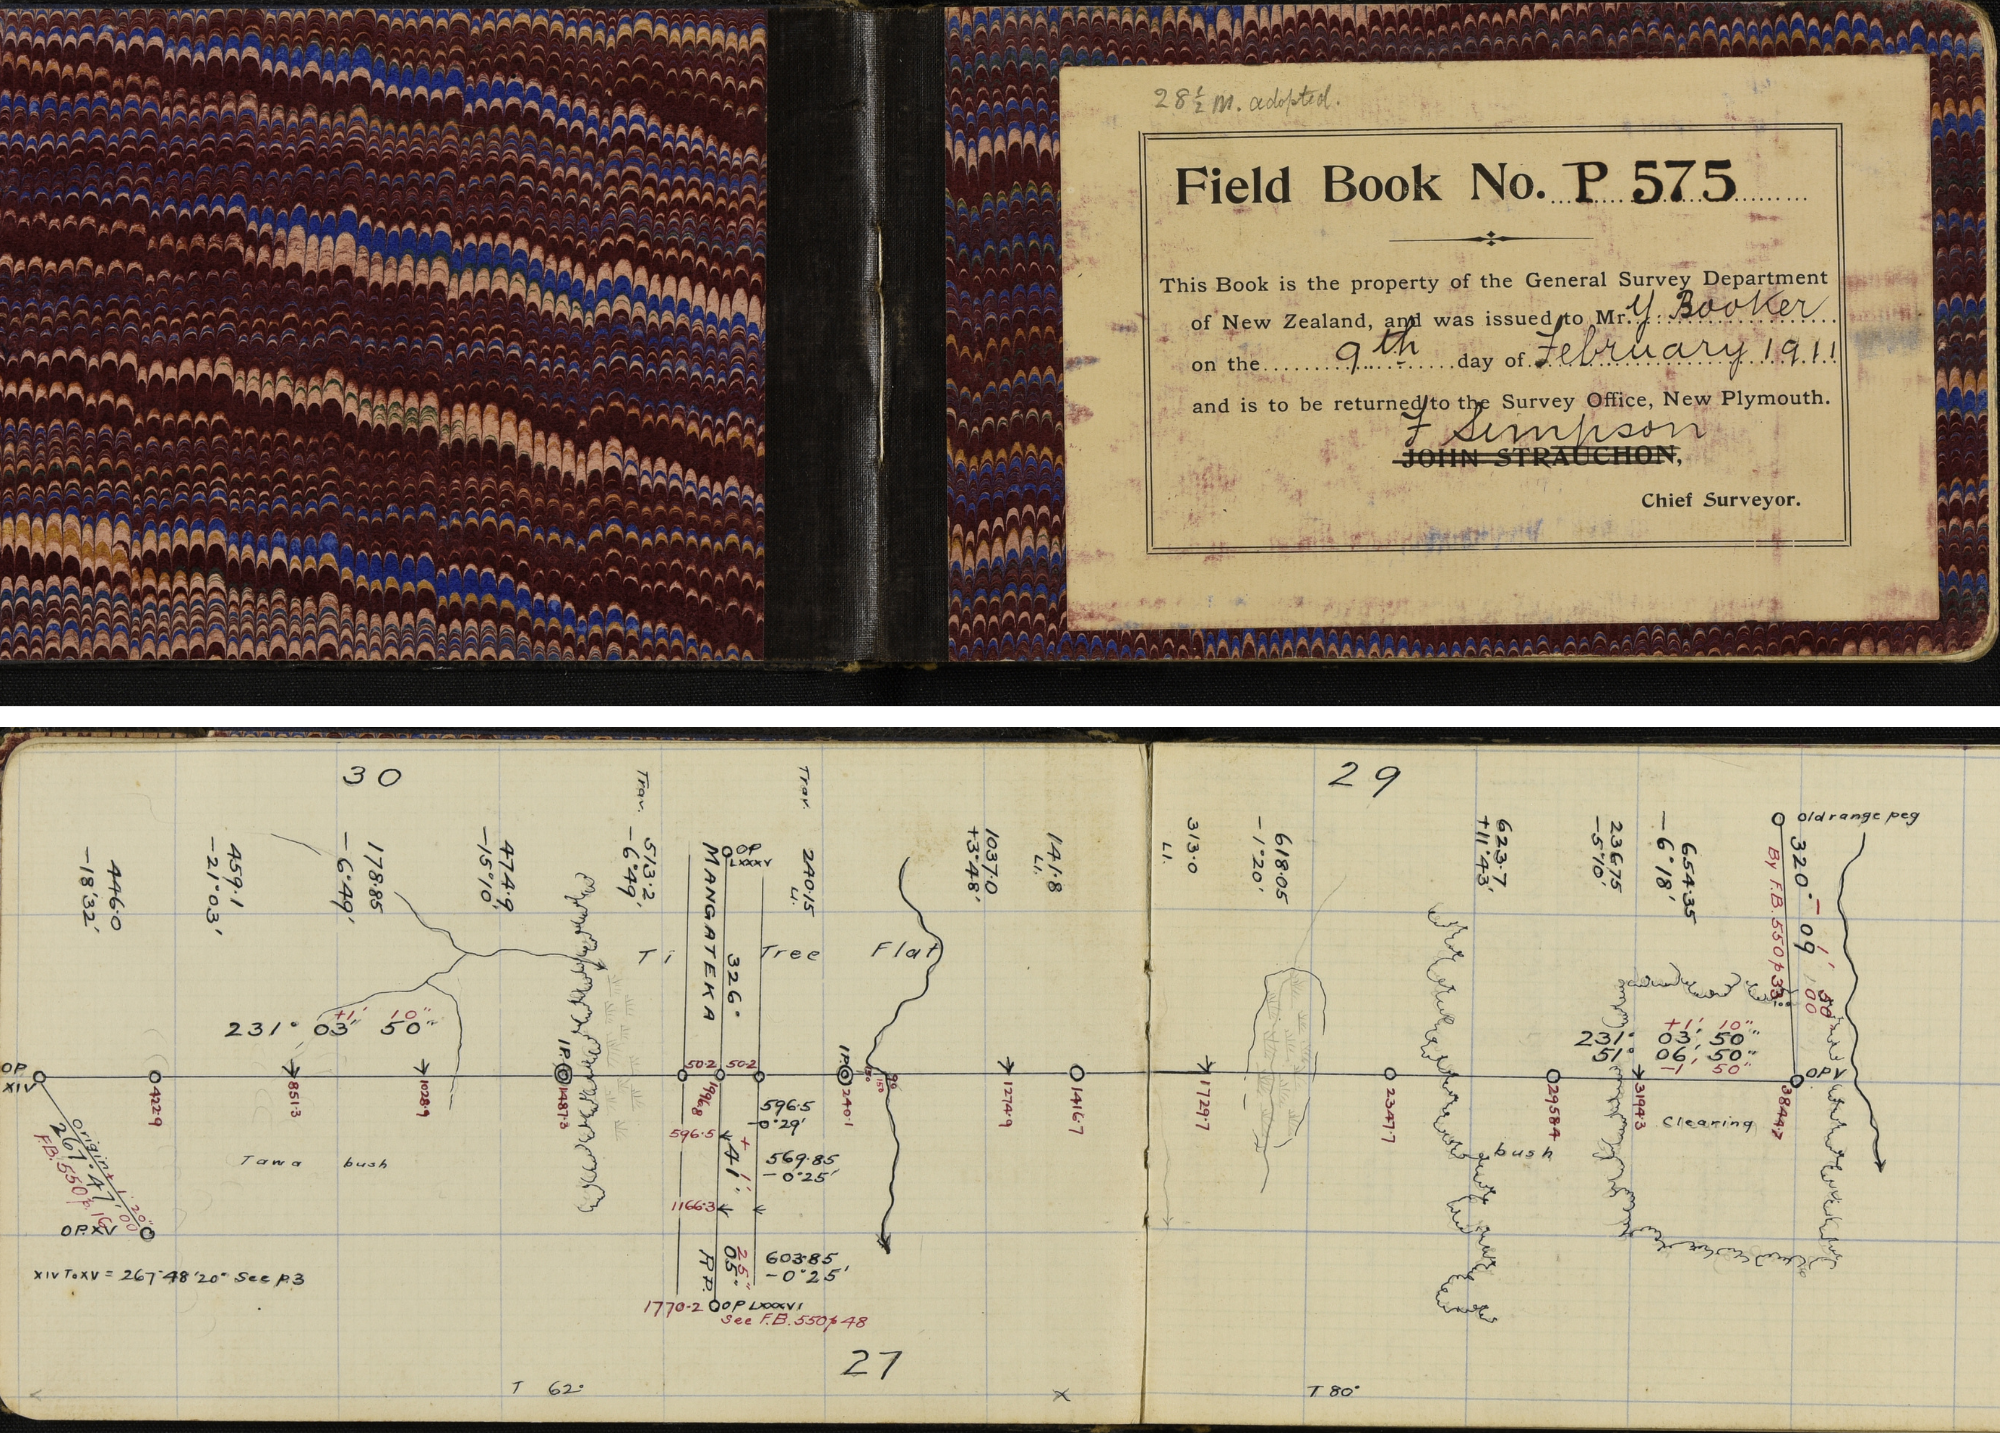 28½ M. adopted.
Field Book No. P 575
This Book is the property of the General Survey Department
of New Zealand, and was issued to Mr. Y Booker
on the 9th day of February 1911
and is to be returned to the Survey Office, New Plymouth.
F Simpson
JOHN STRAUCHON,
Chief Surveyor.
30
29
446.0
-18°32'
459.1
-21°03'
178.85
-6°49'
474.9
-15°10'
Trav.
513.2
-6°49'
Trav.
240.15
Li.
1037.0
+3°48'
141.8
Li.
313.0
Li.
618.05
-1°20'
623.7
+11°43'
236.75
-5°10'
654.35
-6°18'
Old range peg
320° 09'
By F.B. 550 p 33
OP
LXXXV
MANGATEKA
326°
Ti Tree Flat
+1' 10"
231° 03' 50"
+1' 10"
231° 03' 50"
51° 06' 50"
-1' 50"
OP
XIV
422.9
851.3
1028.9
I.P.
1487.3
50.2
50.2
1996.8
I.P.
2240.1
1274.9
1416.7
1729.7
2347.7
2958.4
3194.3
3844.7
OP V
Origin
267° 47' 00"
F.B. 550 p. 16
OP. XV
XIV To XV = 267°48'20" See p.3
Tawa bush
596.5
-0°29'
596.5
41'
569.85
-0°25'
1166.3
RP.
05"
25"
603.85
-0°25'
1770.2
OP LXXXVI
See F.B. 550 p 48
bush
Clearing
27
T 62°
x
T 80°